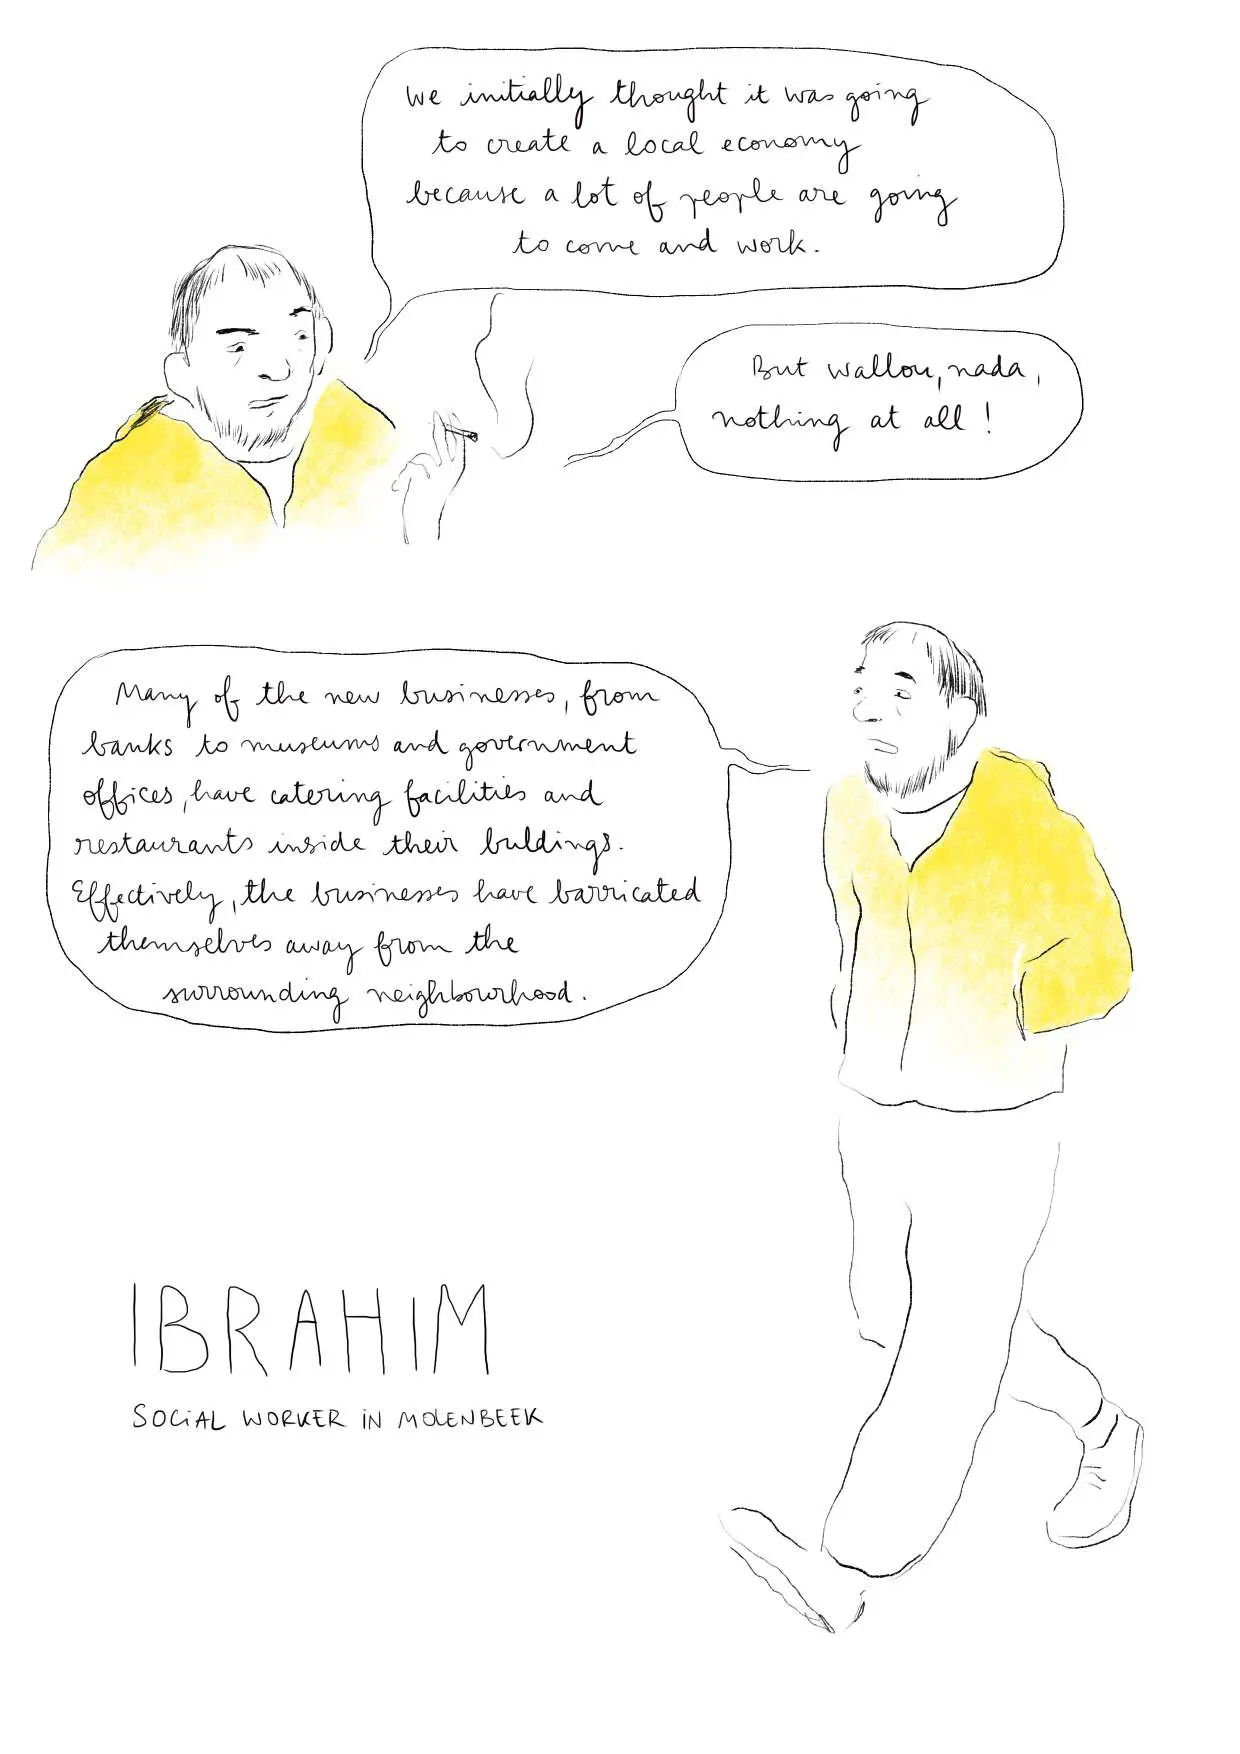 We initially thought it was going
to create a local economy
because a lot of people are going
to come and work.
But wallou, nada,
nothing at all !
Many of the new businesses, from
banks to museums and government
offices, have catering facilities and
restaurants inside their buldings.
Effectively, the businesses have barricated
themselves away from the
surrounding neighbourhood.
IBRAHIM
SOCIAL WORKER IN MOLENBEEK